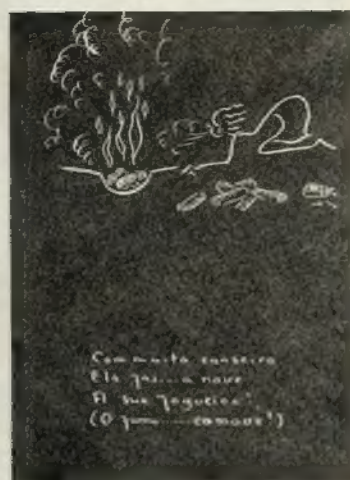 Com muita canseira
Ela faz.....a nove
A sua fogueira!
(O fumo........comove!)